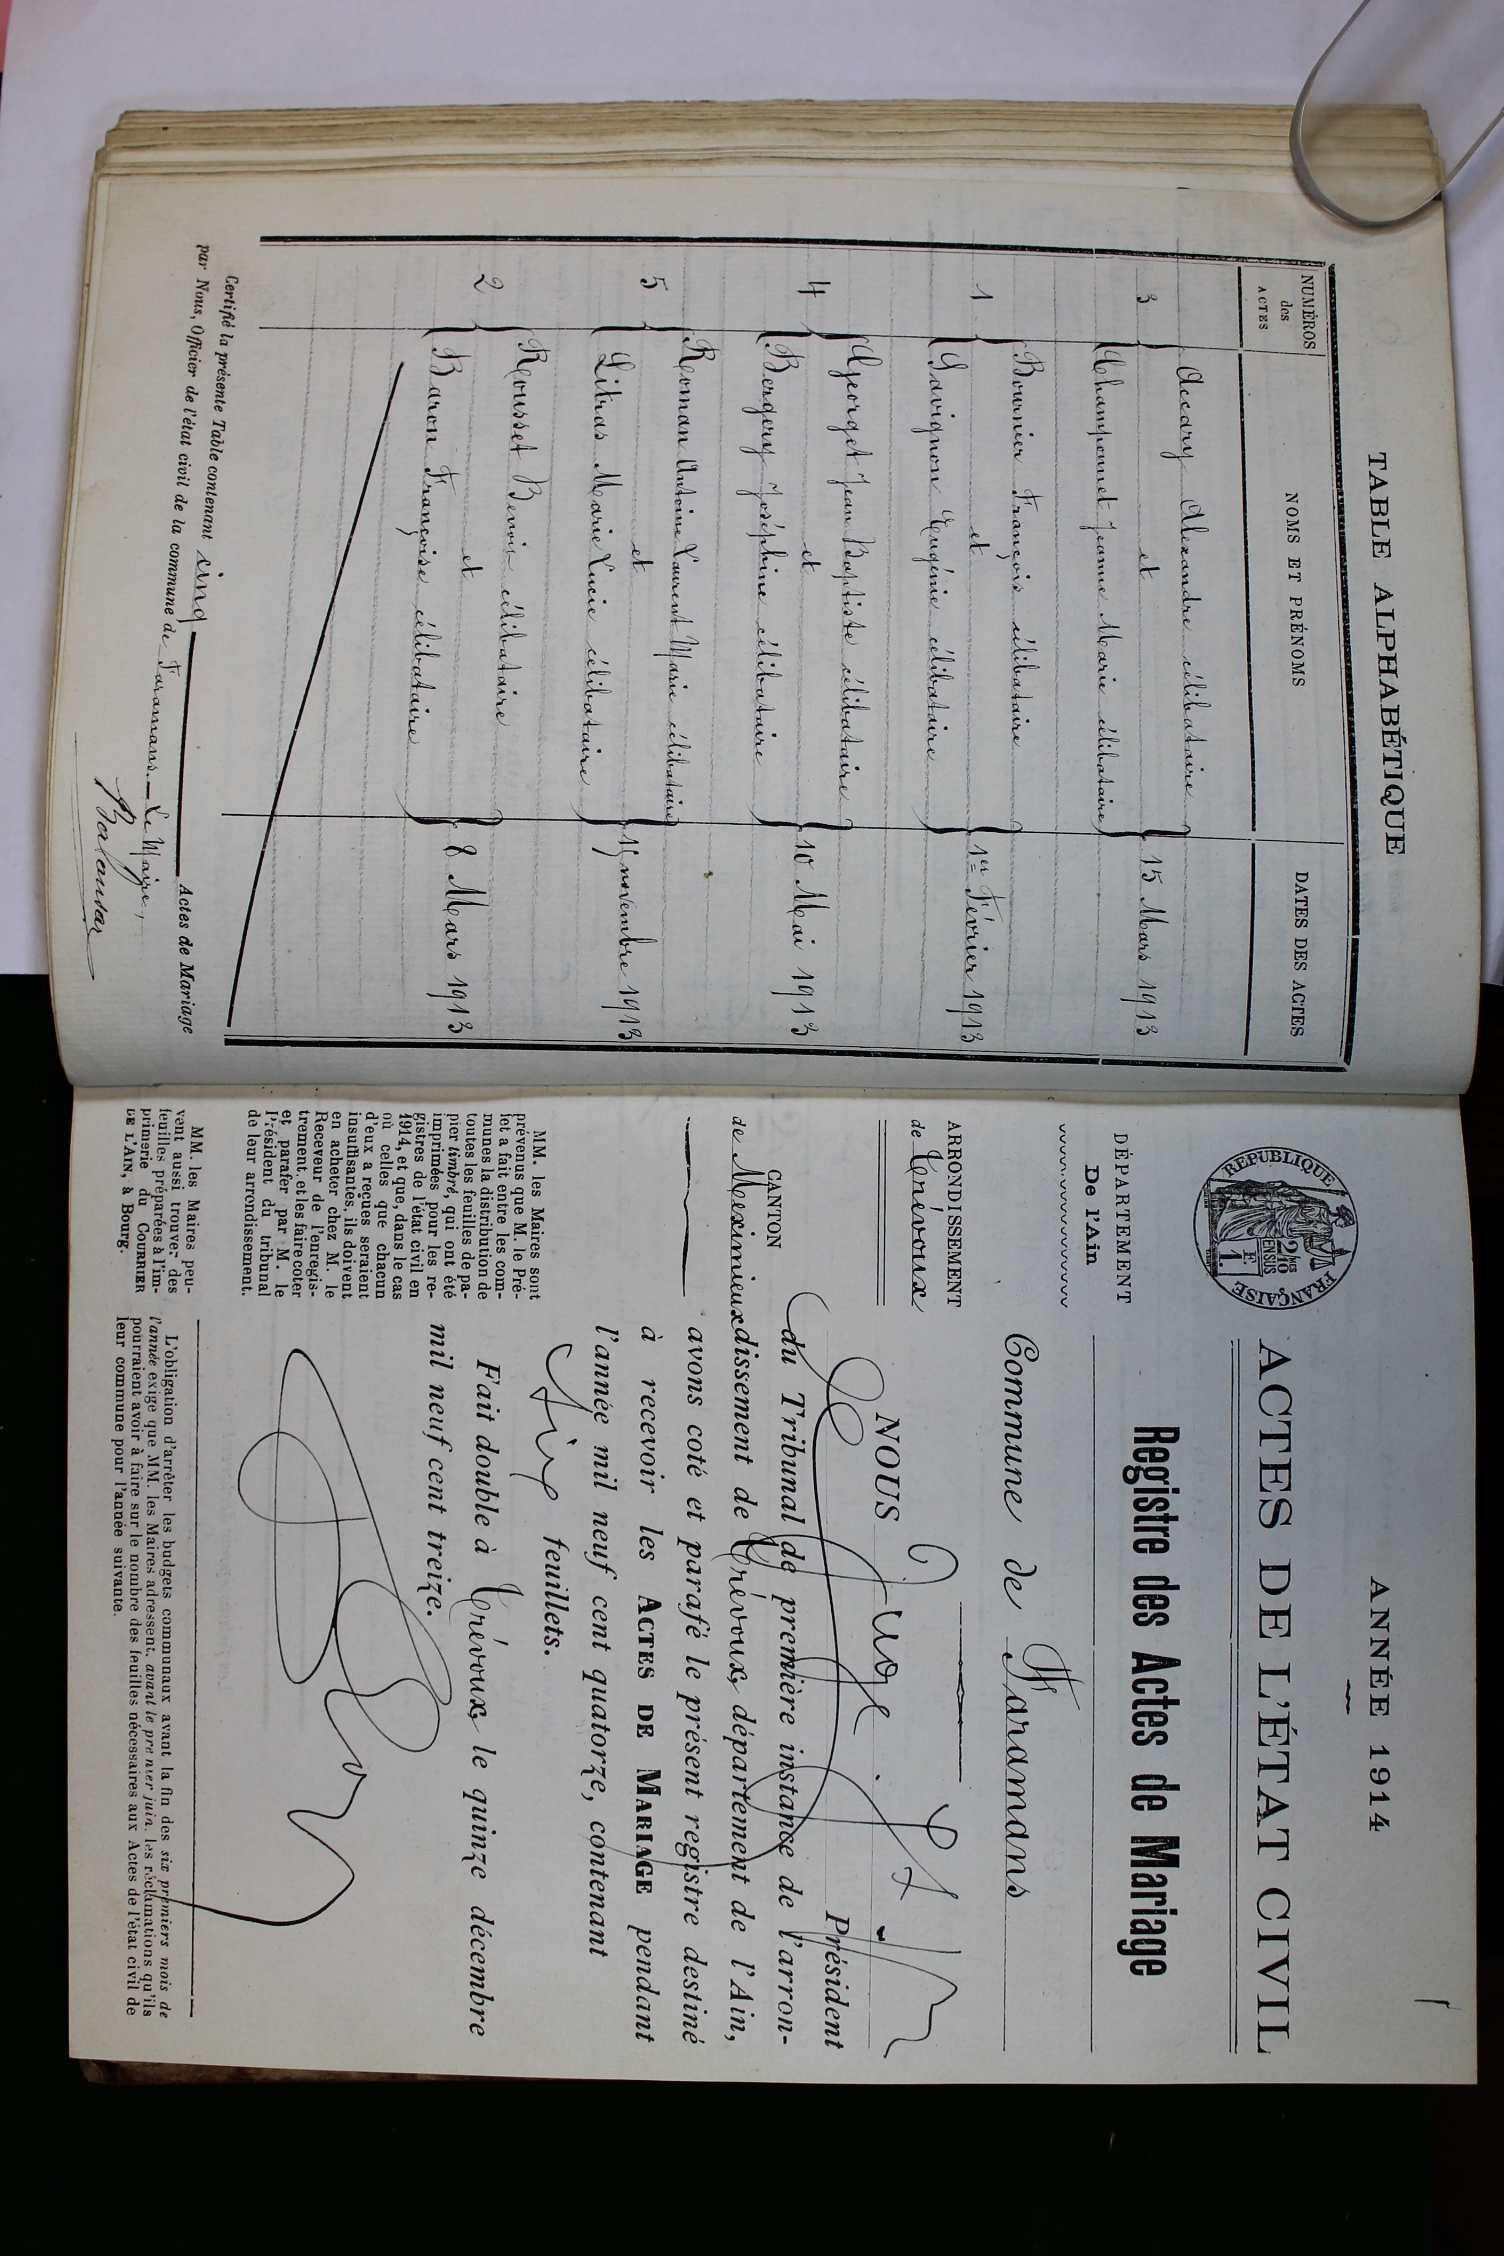 TABLE ALPHABÉTIQUE
NUMÉROS
des
ACTES
NOMS ET PRÉNOMS
DATES DES ACTES
Accary Alexandre célibataire
3 et 15 Mars 1913
Champonnet Jeanne Marie célibataire
Bournier François célibataire
1 et 1er Février 1913
Savignon Eugénie célibataire
Georget Jean Baptiste célibataire
4 et 10 Mai 1913
Bergery Joséphine célibataire
Roman Antoine Laurent Marie célibataire
5 et 15 novembre 1913
Litras Marie Lucie célibataire
Rousset Benoit célibataire
2 et 8 Mars 1913
Baron Françoise célibataire
Certifié la présente Table contenant cinq Actes de Mariage
par Nous, Officier de l'état civil de la commune de Faramans. Le Maire,
ANNÉE 1914
ACTES DE L'ÉTAT CIVIL
REPUBLIQUE FRANÇAISE
2/10mes
EN SUS
F.
1.
Registre des Actes de Mariage
DÉPARTEMENT
De l'Ain
Commune de Faramans
ARRONDISSEMENT
de Trévoux
CANTON
de Meximieux
MM. les Maires sont
prévenus que M. le Pré-
fet a fait entre les com-
munes la distribution de
toutes les feuilles de pa-
pier timbré, qui ont été
imprimées pour les re-
gistres de l'état civil en
1914, et que, dans le cas
où celles que chacun
d'eux a reçues seraient
insuffisantes, ils doivent
en acheter chez M. le
Receveur de l'enregis-
trement, et les faire coter
et parafer par M. le
Président du tribunal
de leur arrondissement.
MM. les Maires peu-
vent aussi trouver des
feuilles préparées à l'im-
primerie du COURRIER
DE L'AIN, à Bourg.
NOUS Juge Président
du Tribunal de première instance de l'arron-
dissement de Trévoux, département de l'Ain,
avons coté et parafé le présent registre destiné
à recevoir les ACTES DE MARIAGE pendant
l'année mil neuf cent quatorze, contenant
Six feuillets.
Fait double à Trévoux, le quinze décembre
mil neuf cent treize.
L'obligation d'arrêter les budgets communaux avant la fin des six premiers mois de
l'année exige que MM. les Maires adressent, avant le premier juin, les réclamations qu'ils
pourraient avoir à faire sur le nombre des feuilles nécessaires aux Actes de l'état civil de
leur commune pour l'année suivante.